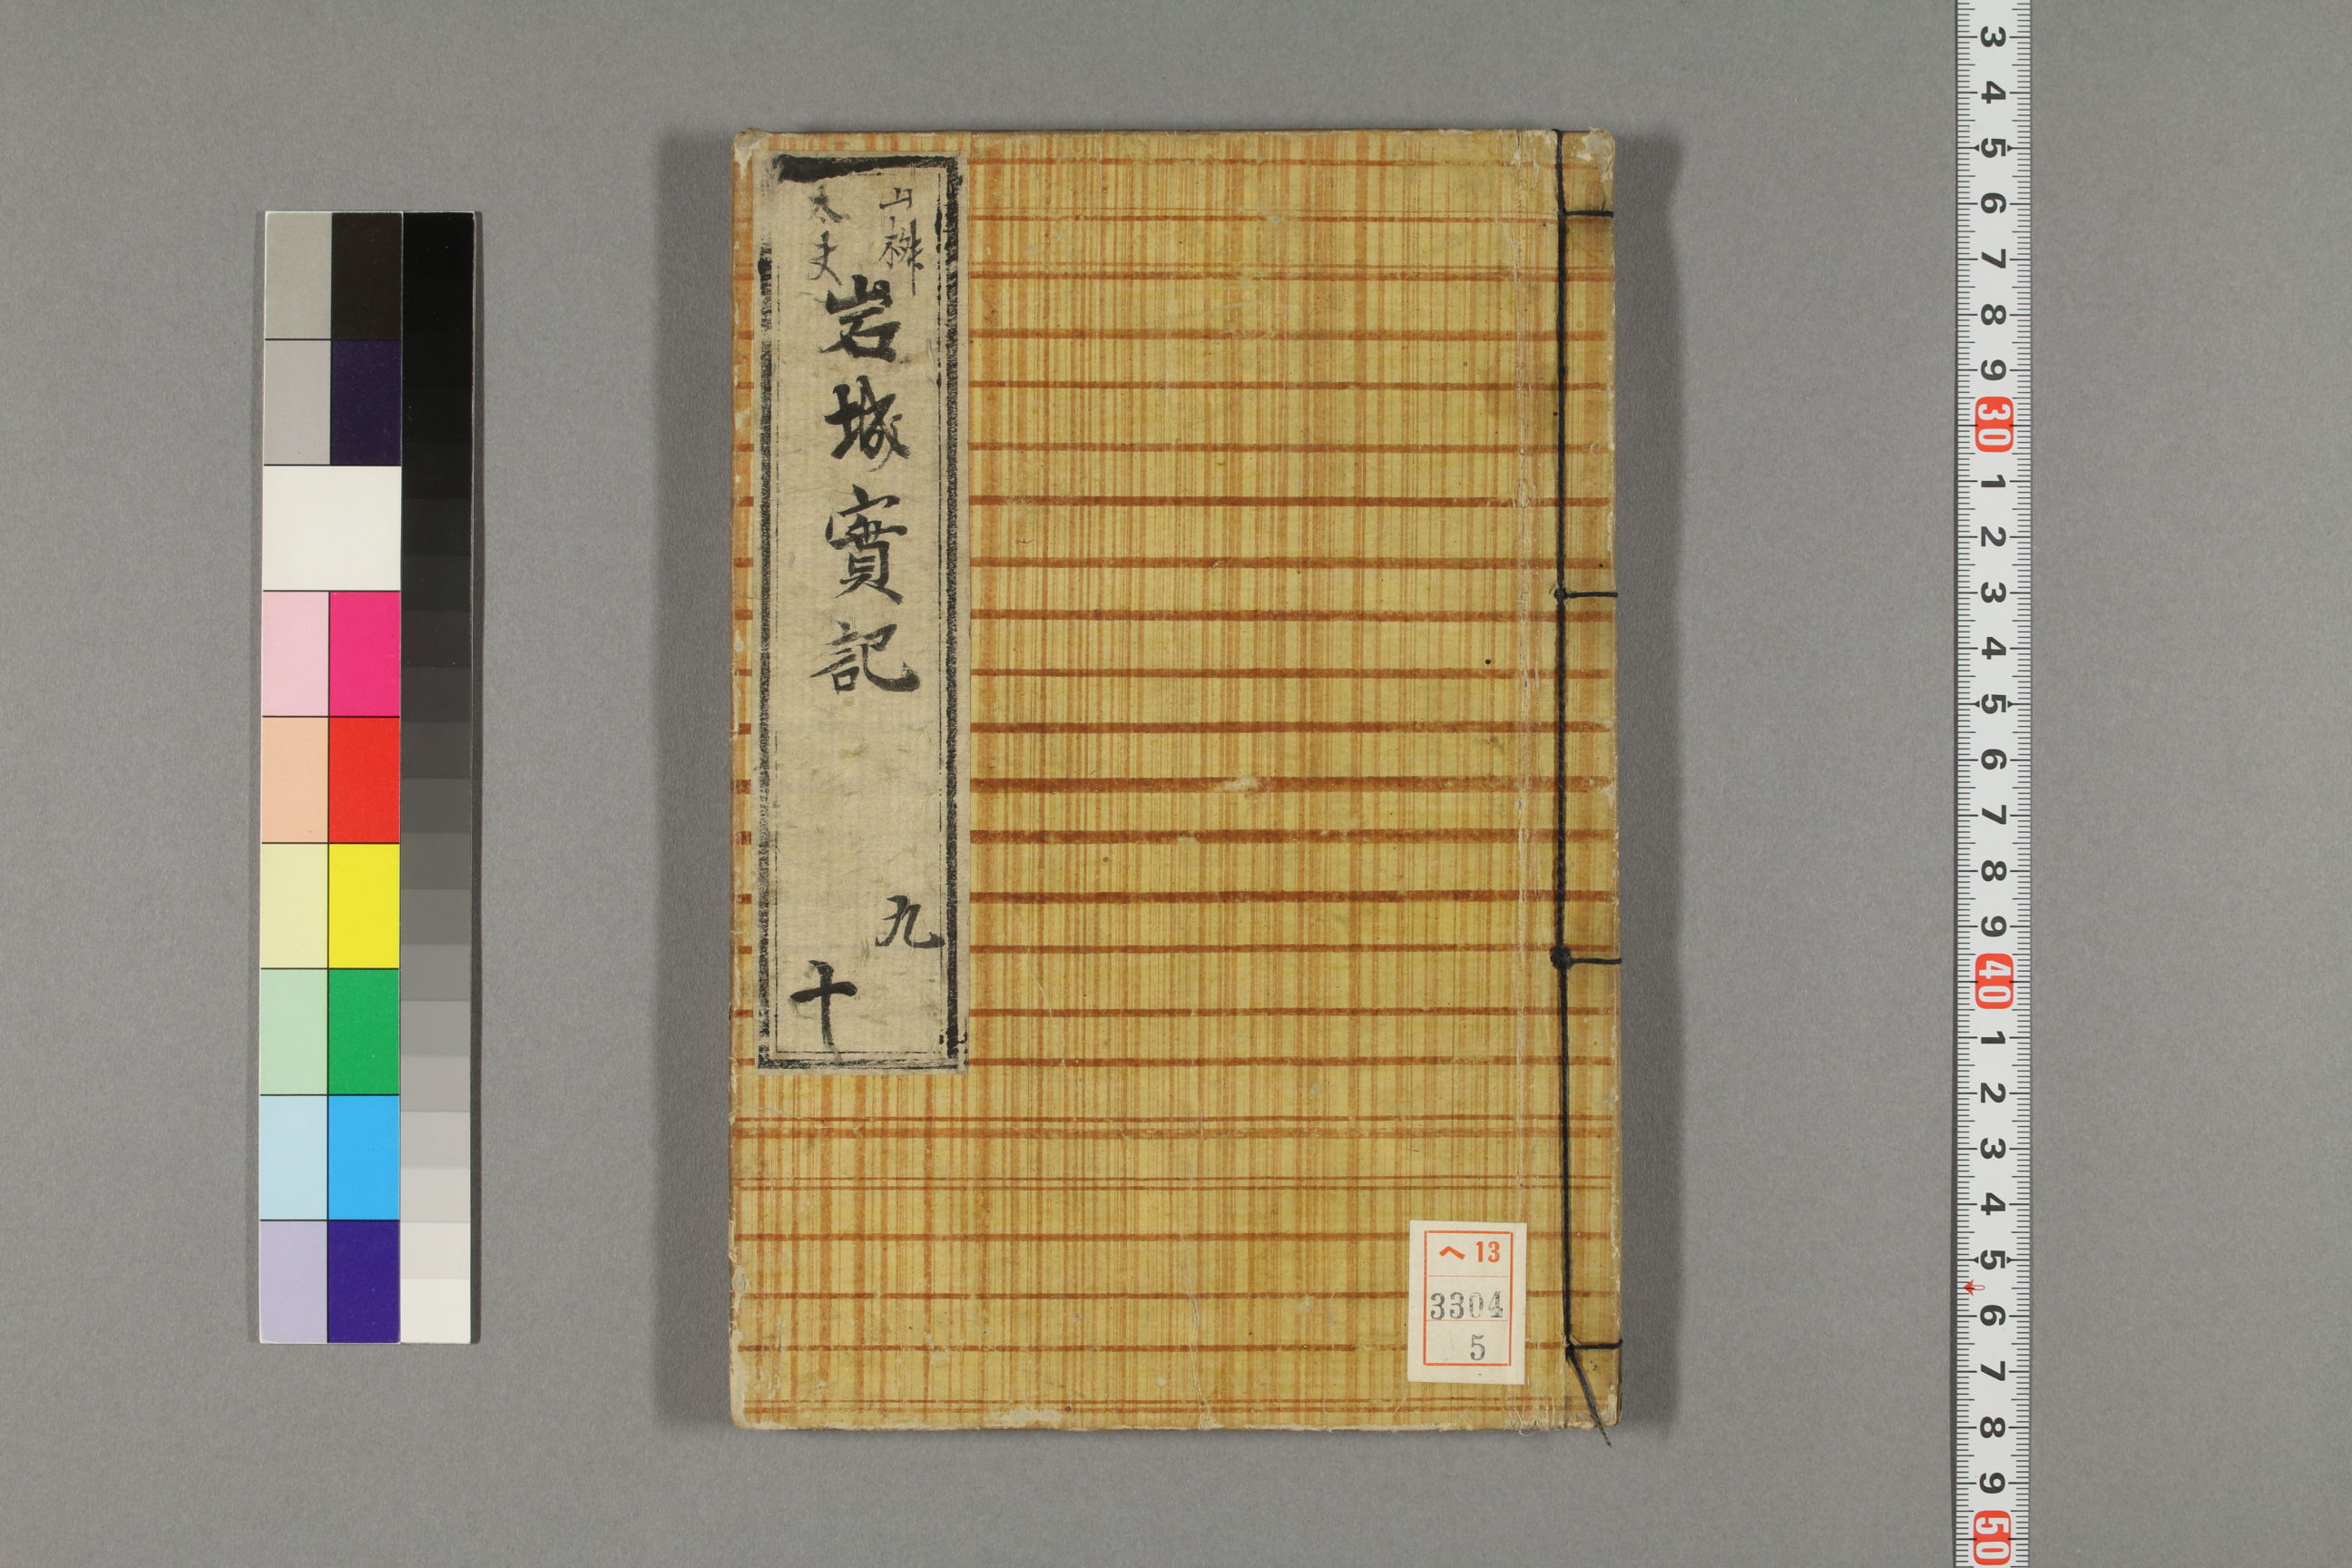 山桝
太夫
岩城實記
九
十
へ13
3304
5
3
4
5
6
7
8
9
30
1
2
3
4
5
6
7
8
9
40
1
2
3
4
5
6
7
8
9
50